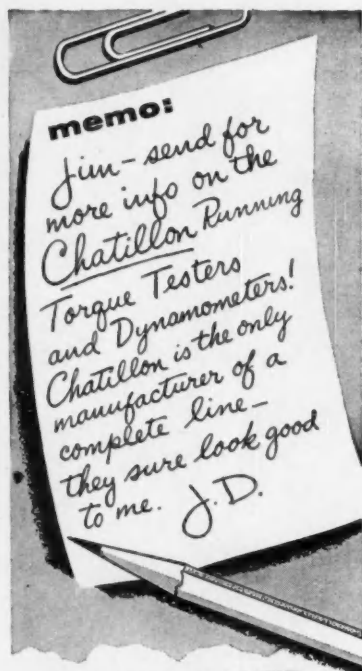 memo:
Jim - send for
more info on the
Chatillon Running
Torque Testers
and Dynamometers!
Chatillon is the only
manufacturer of a
complete line -
they sure look good
to me. J.D.